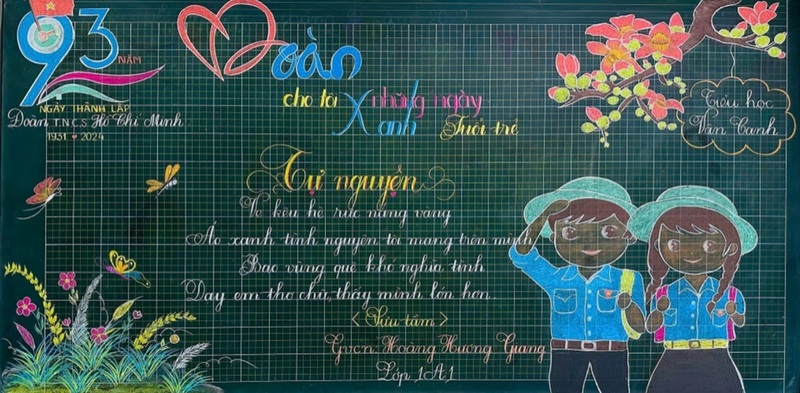 93 NĂM
NGÀY THÀNH LẬP
Đoàn T.N.C.S Hồ Chí Minh
1931 ♥ 2024
Đoàn
cho tôi những ngày
Xanh Tuổi trẻ
Tiểu học
Vân Canh
Tự nguyện
Về kêu hè rực nắng vàng
Áo xanh tình nguyện tôi mang trên mình
Bao vùng quê khó nghĩa tình
Dạy em thơ chữ, thấy mình lớn hơn.
< Sưu tầm >
Gvcn: Hoàng Hương Giang
Lớp 1A1